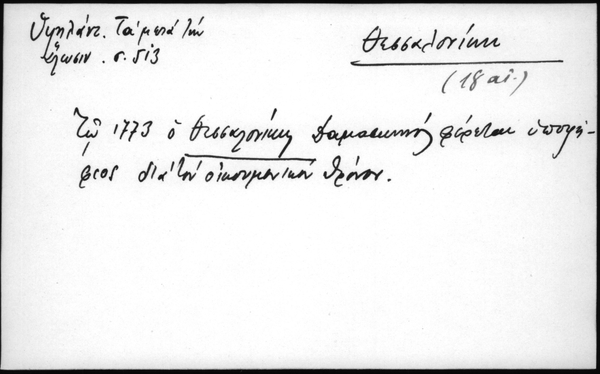 Ὑψηλάντ. Τὰ μετὰ τὴν
ἅλωσιν. σ. 513
Θεσσαλονίκη
(18 αἰ.)
Τῷ 1773 ὁ Θεσσαλονίκης Δαμασκηνός φέρεται ὑποψή-
φιος διὰ τὸν οἰκουμενικὸν θρόνον.